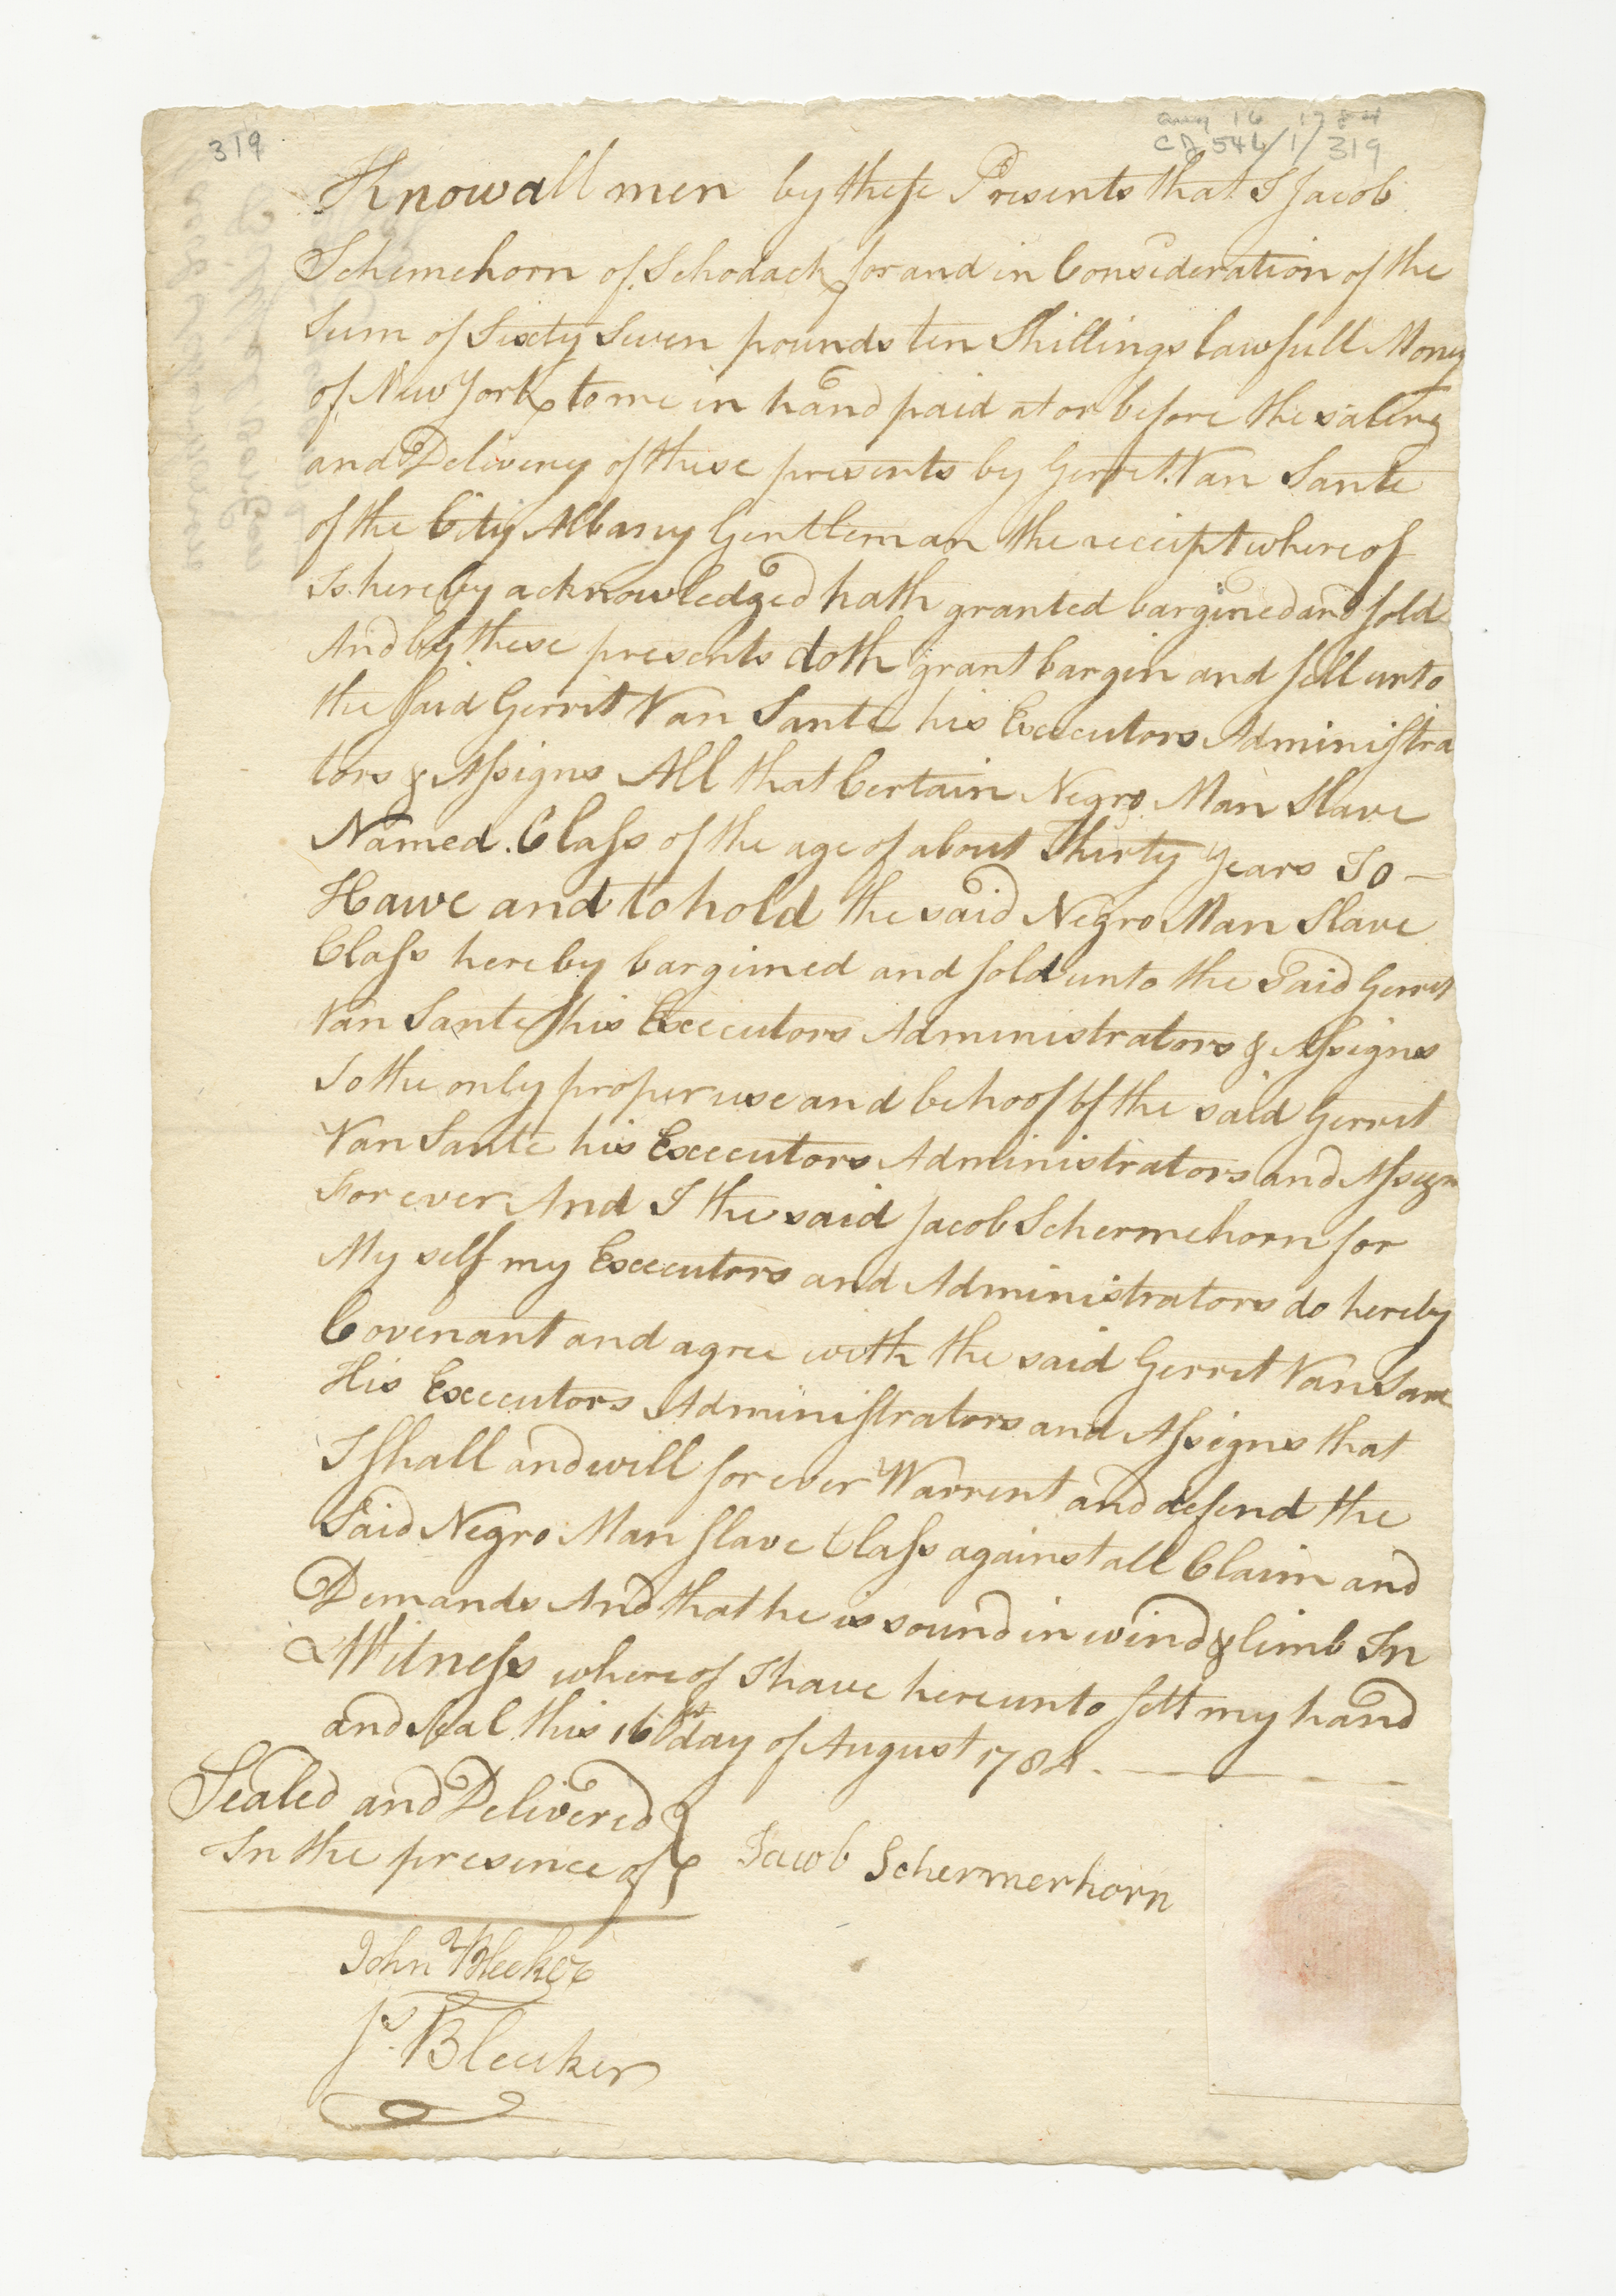 319
Aug 16 1784
CJ 546/1/319
Know all men by these Presents that I Jacob
Schemehorn of Schodack for and in Consideration of the
Sum of Sixty Seven pounds ten Shillings lawfull Mony
of New York to me in hand paid at or before the saling
and Delivery of these presents by Gerrit Van Sante
of the City Albany Gentleman the receipt where of
Is hereby acknowledged hath granted bargined and sold
And by these presents doth grant bargin and sell unto
the said Gerrit Van Sante his Executors Administra
tors & Assigns All that Certain Negro Man Slave
Named Class of the age of about Thirty Years To —
Have and to hold the said Negro Man Slave
Class hereby bargined and sold unto the Said Gerrit
Van Sante his Executors Administrators & Assigns
To the only proper use and behoof of the said Gerrit
Van Sante his Executors Administrators and Assigns
For ever And I the said Jacob Schermehorn for
My self my Executors and Administrators do hereby
Covenant and agree with the said Gerrit Van Sant
His Executors Administrators and Assigns that
I shall and will for ever Warrent and defend the
Said Negro Man slave Class against all Claim and
Demands And that he is sound in wind & limb In
Witness where of I have hereunto sett my hand
and Seal this 16th day of August 1784. — — —
Sealed and Delivered
In the presence of
Jacob Schermerhorn
John Bleeker
Js. Bleecker